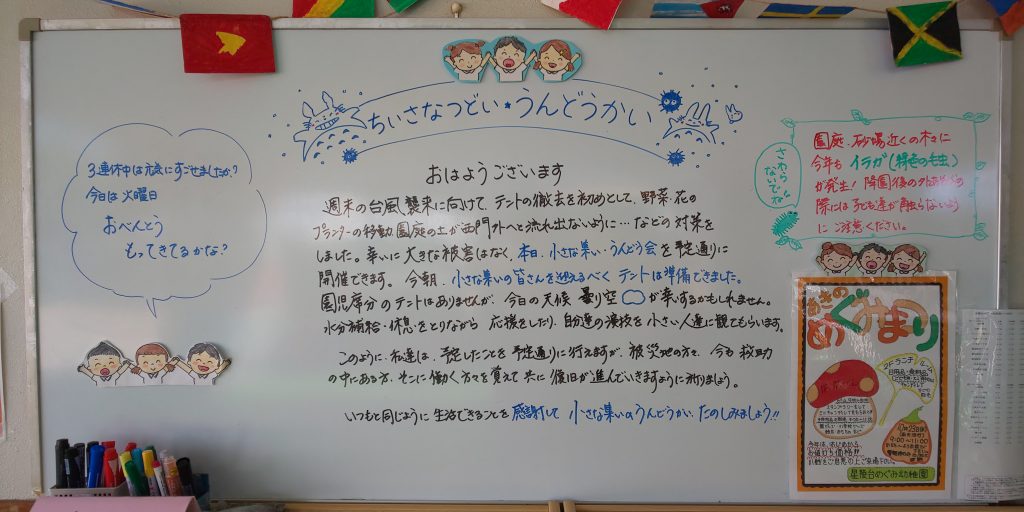 ちいさなつどい★うんどうかい
3連休中は元気にすごせましたか?
今日は火曜日
おべんとう
もってきてるかな?
おはようございます
週末の台風襲来に向けて、テントの撤去を初めとして、野菜・花の
プランターの移動、園庭の土が西門外へと流れ出ないように…などの対策を
しました。幸いに大きな被害はなく、本日、小さな集い・うんどう会を予定通りに
開催できます。今朝、小さな集いの皆さんを迎えるべくテントは準備できました。
園児席分のテントはありませんが、今日の天候 曇り空が幸いするかもしれません。
水分補給・休息をとりながら 応援をしたり、自分達の演技を小さい人達に観てもらいます。
このように、私達は、予定したことを予定通りに行えますが、被災地の方々、今も救助
の中にある方、そこに働く方々を覚えて共に復旧が進んでいきますように祈りましょう。
いつもと同じように生活できることを感謝して 小さな集いのうんどうかい、たのしみましょう!!
さわら
ないでね
園庭、砂場近くの木々に
今年も イラガ(緑色の毛虫)
が発生! 降園後の外あそびの
際には子ども達が触らないよう
にご注意ください。
あきの
めぐみまつり
2Fランチルーム
9:00〜11:00
星陵台めぐみ幼稚園